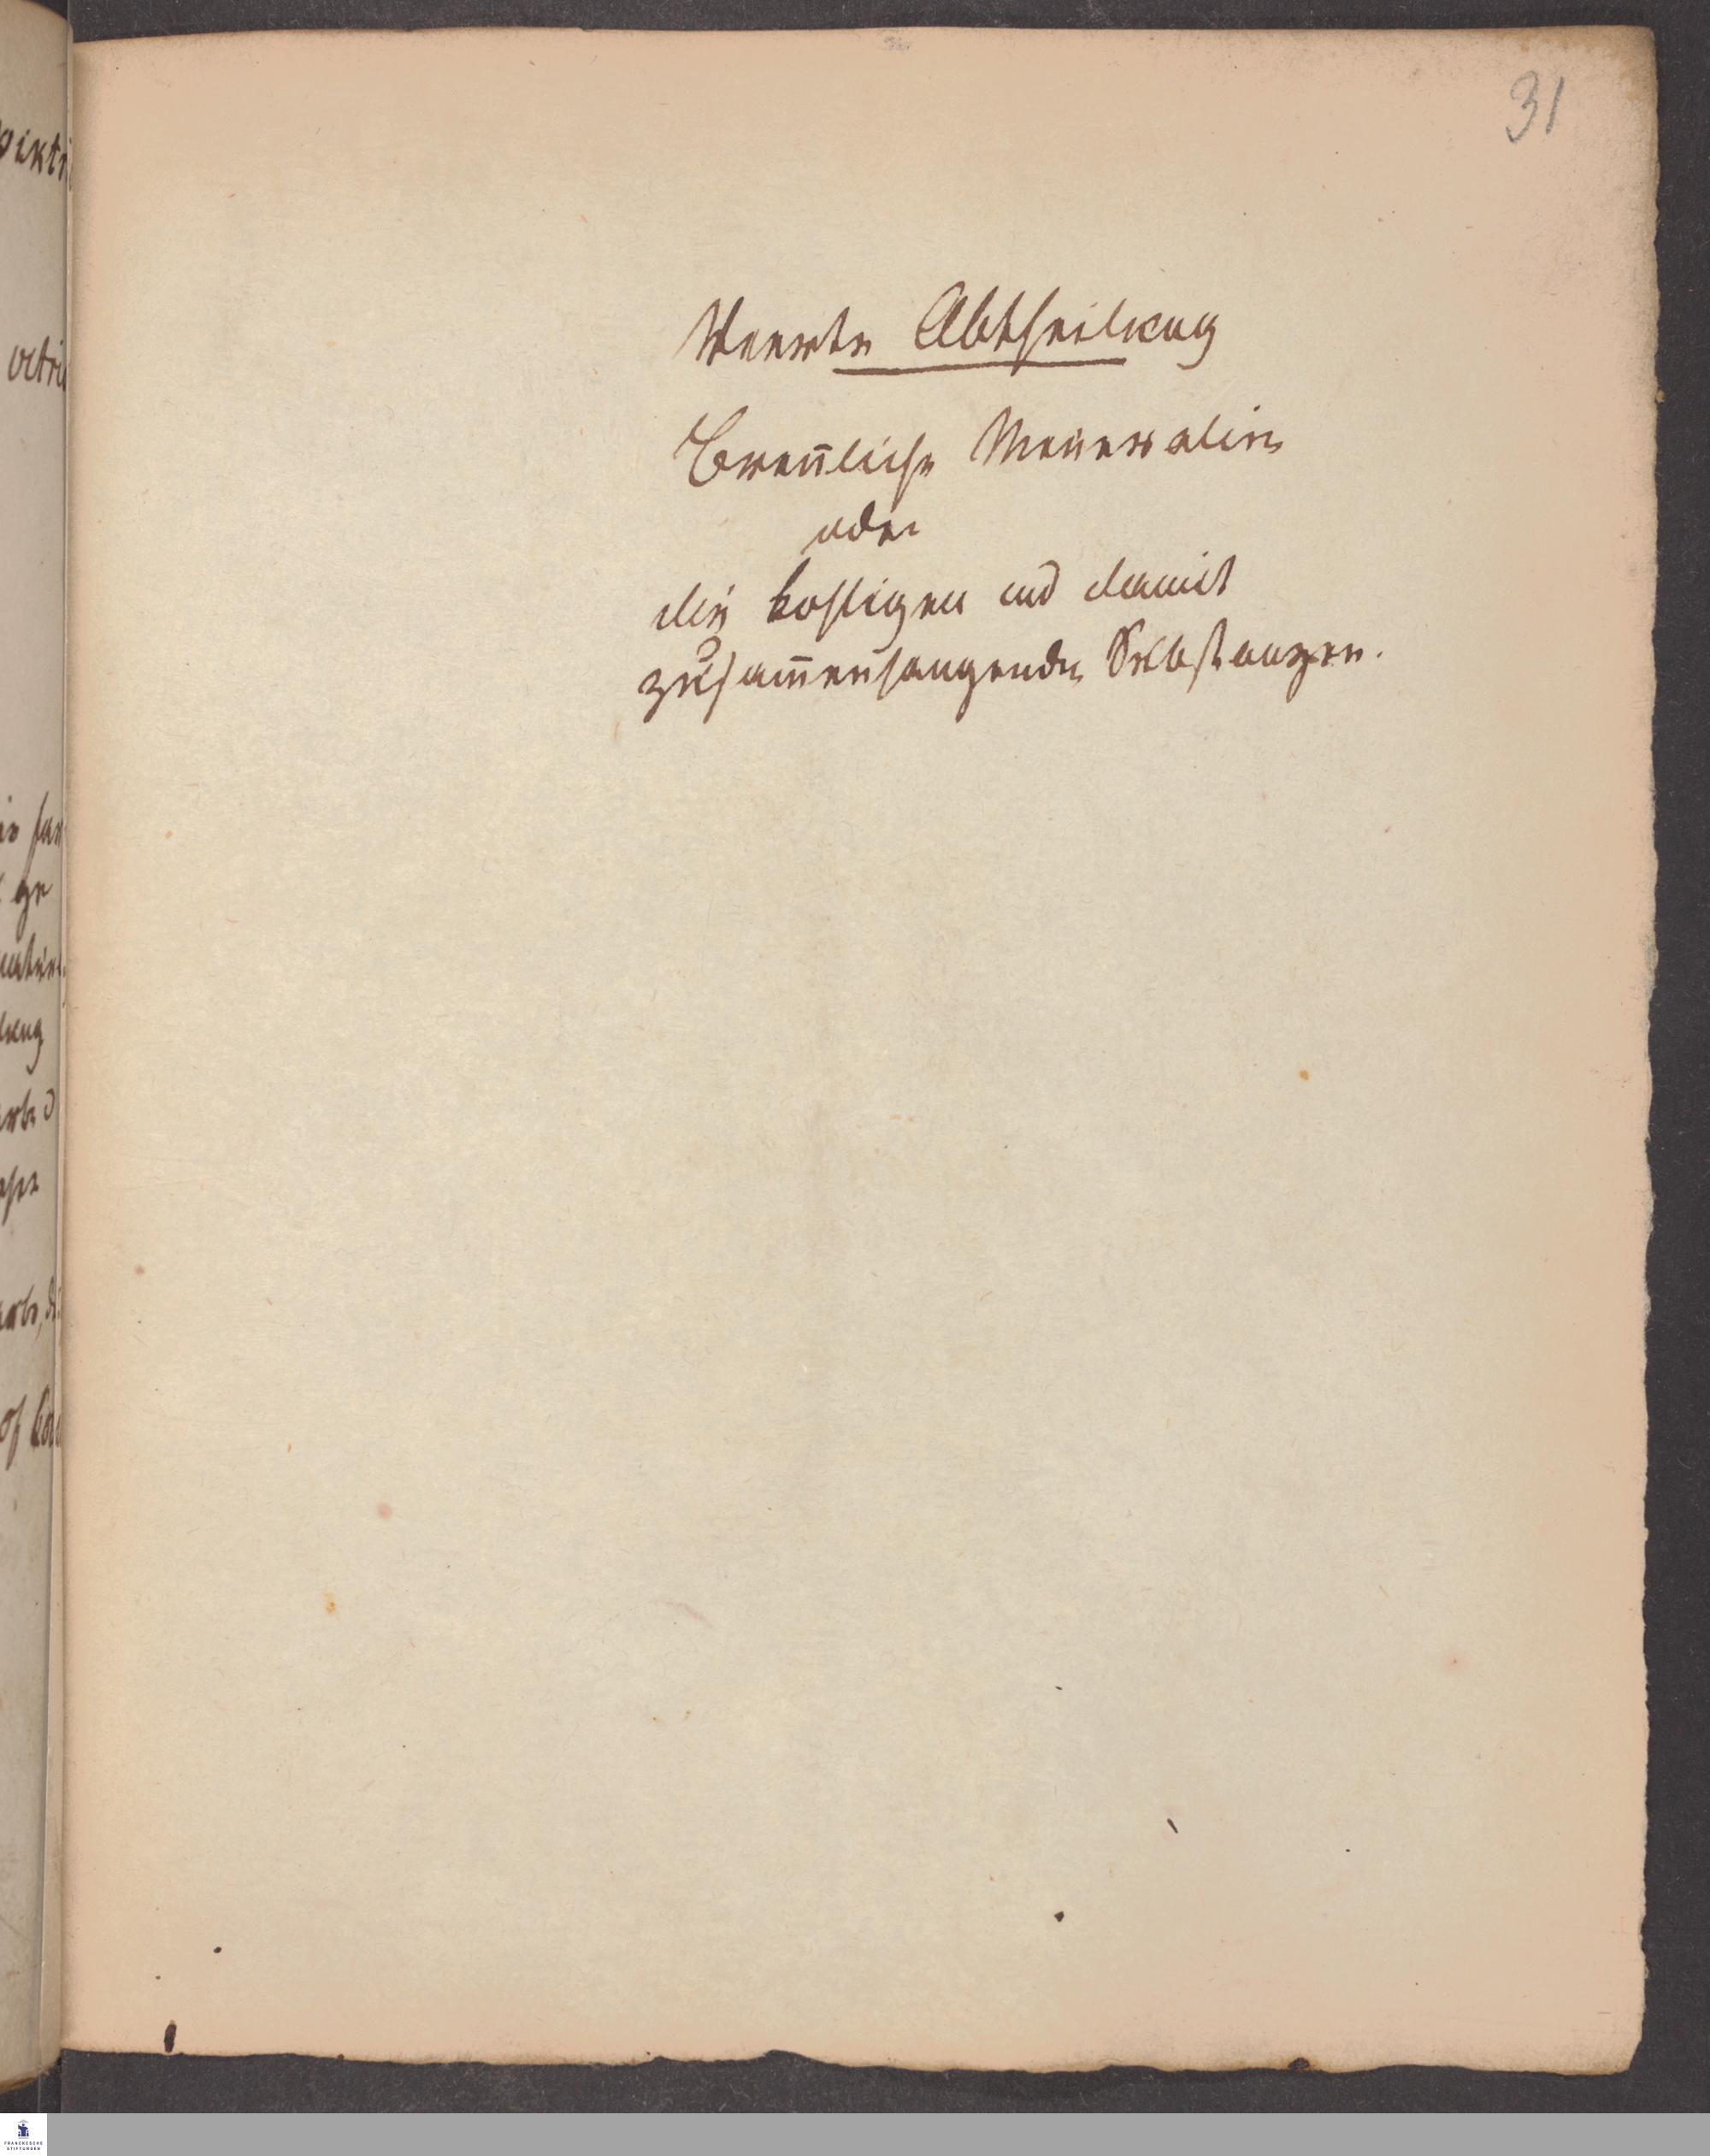 31
Vierte Abtheilung
Brenliche Mineralien
oder
die kohligen und damit
zusam̅enhangende Substanzen.
FRANCKESCHE
STIFTUNGEN